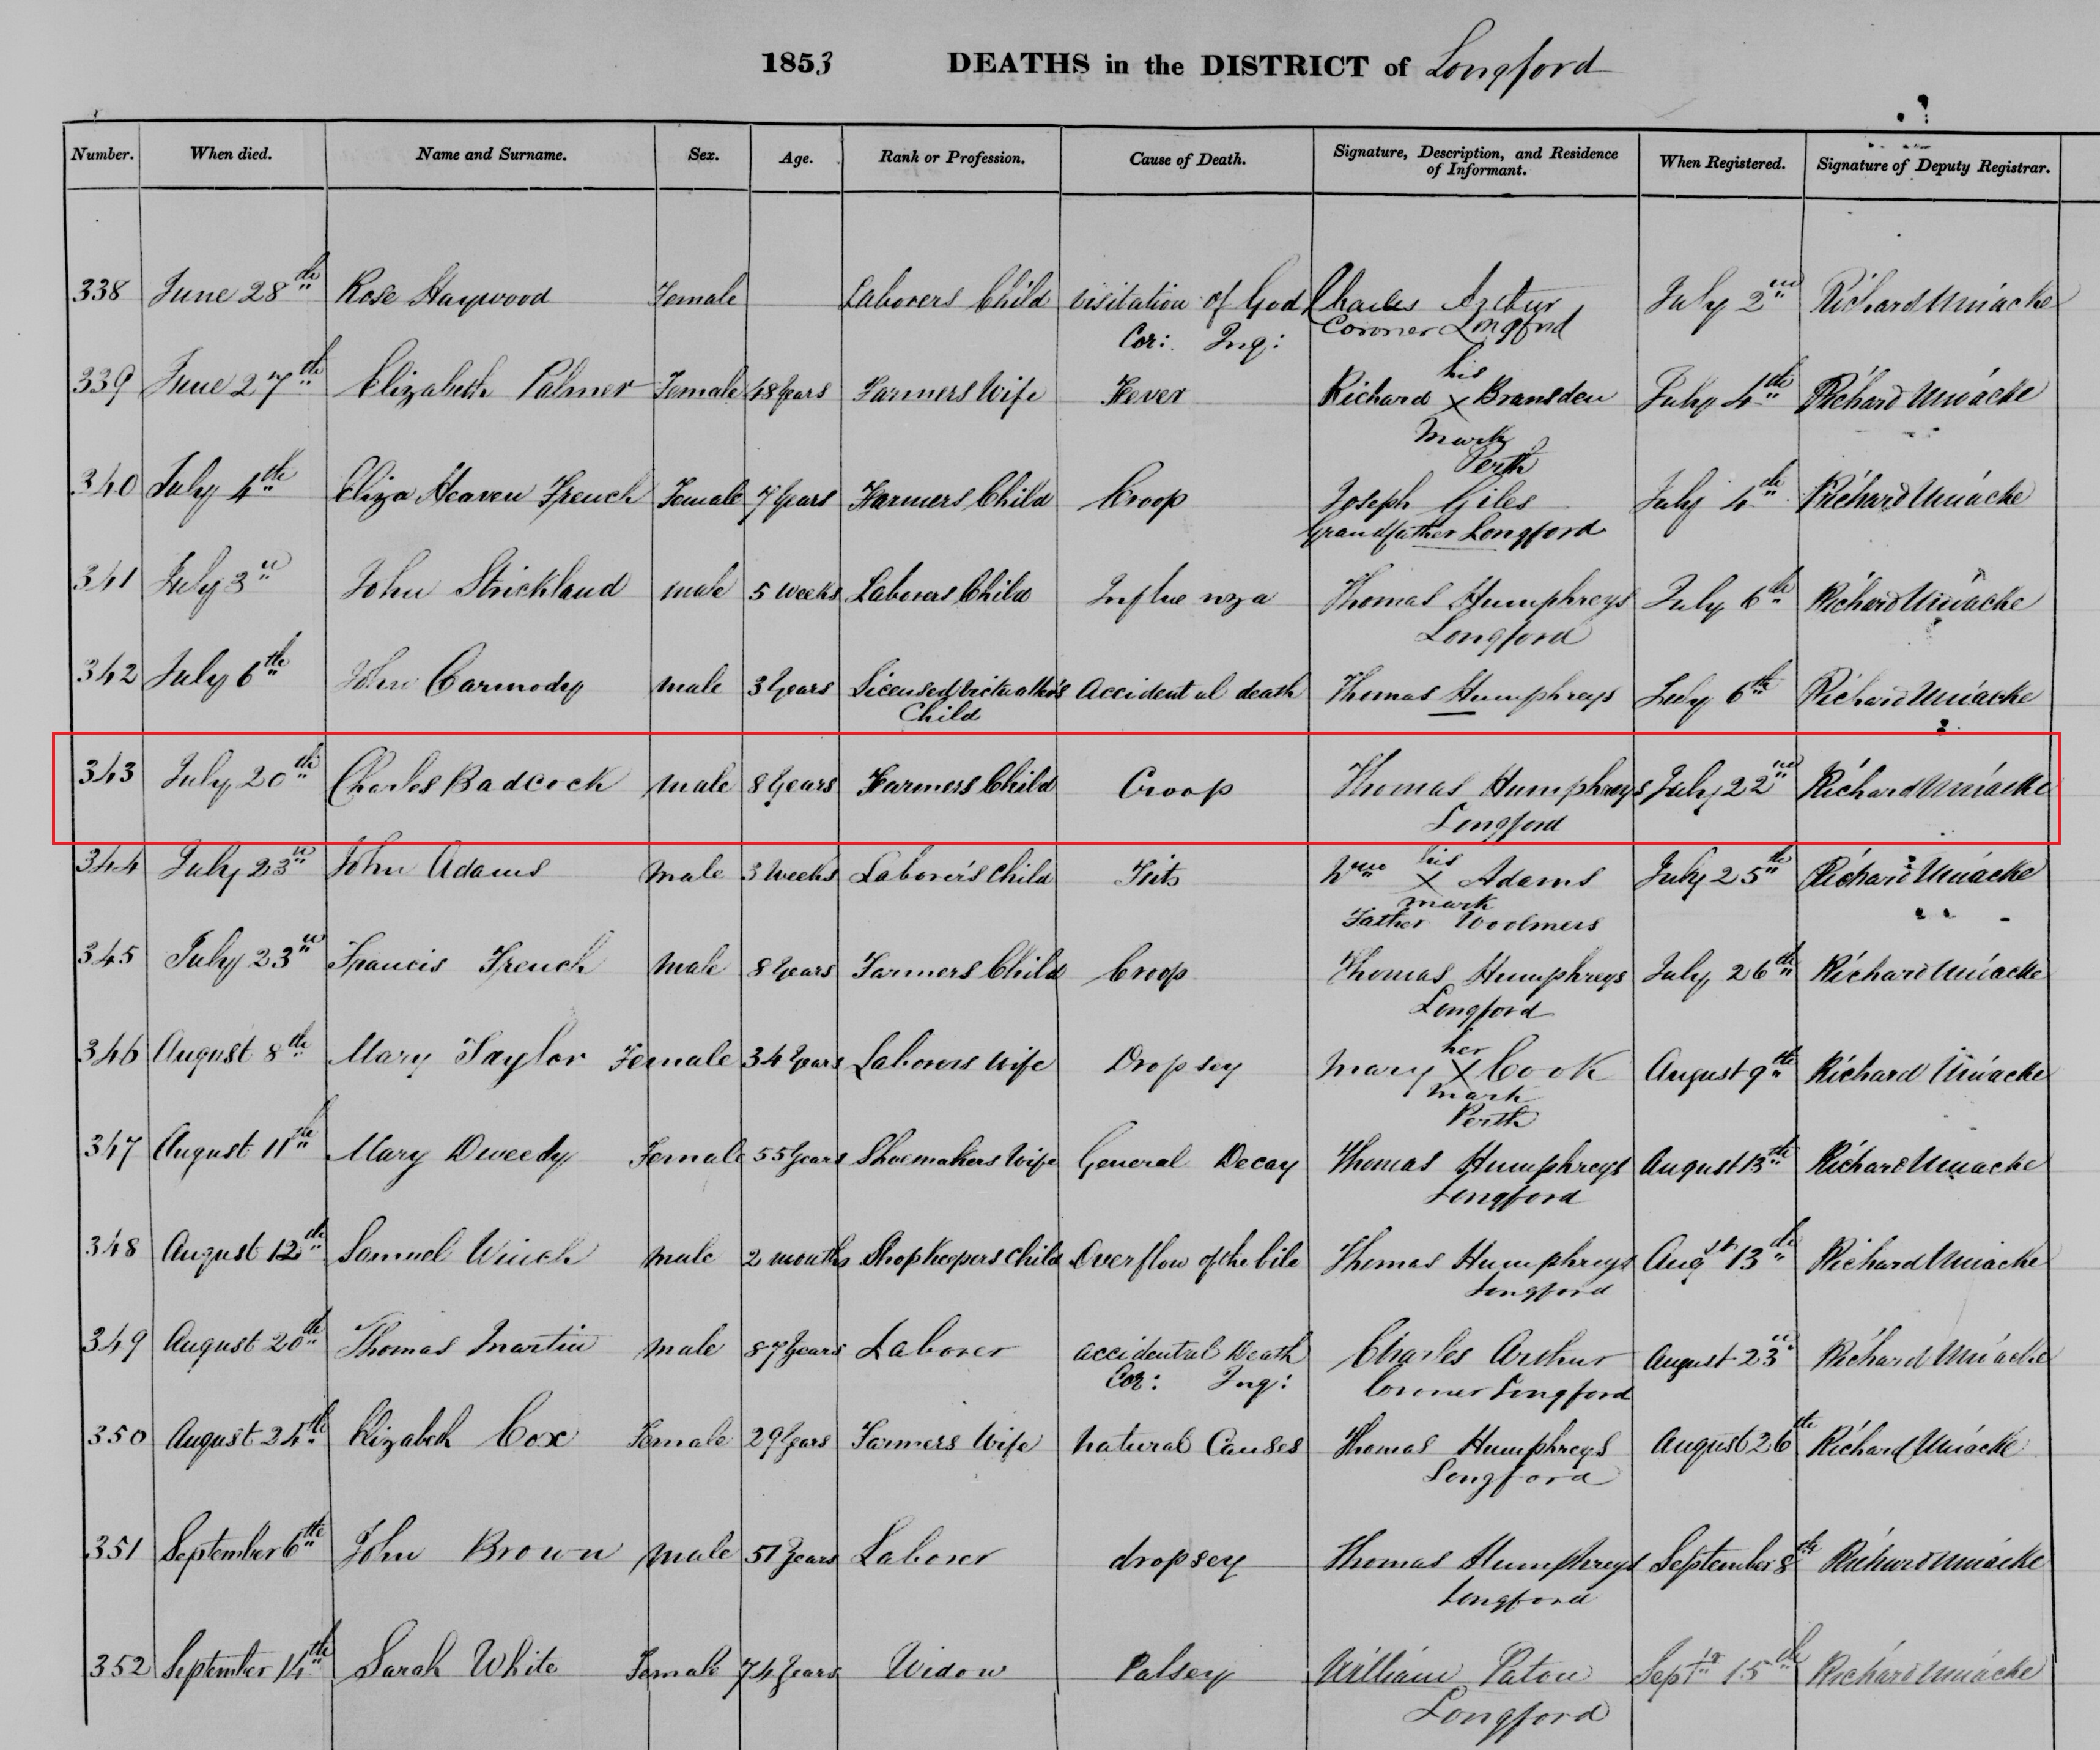 1853 DEATHS in the DISTRICT of Longford
Number. When died. Name and Surname. Sex. Age. Rank or Profession. Cause of Death. Signature, Description, and Residence of Informant. When Registered. Signature of Deputy Registrar.
338 June 28th Rose Haywood Female Laborers Child visitation of God Charles Arthur July 2nd Richard Uniacke
Cor: Inq: Coroner Longford
his
339 June 27th Elizabeth Palmer Female 48 Years Farmers Wife Fever Richard X Bransden July 4th Richard Uniacke
Mark
Perth
340 July 4th Eliza Heaven French Female 7 Years Farmers Child Croop Joseph Giles July 4th Richard Uniacke
Grandfather Longford
341 July 3rd John Strickland male 5 weeks Laborers Child Influenza Thomas Humphreys July 6th Richard Uniacke
Longford
342 July 6th John Carmody male 3 Years Licensed victuallers accidental death Thomas Humphreys July 6th Richard Uniacke
Child
343 July 20th Charles Badcock male 8 Years Farmers Child Croop Thomas Humphreys July 22nd Richard Uniacke
Longford
his
344 July 23rd John Adams Male 3 Weeks Laborers child Fits Wm X Adams July 25th Richard Uniacke
mark
Father Woolmers
345 July 23rd Francis French Male 8 Years Farmers Child Croop Thomas Humphreys July 26th Richard Uniacke
Longford
her
346 August 8th Mary Taylor Female 34 Years Laborers Wife Dropsey Mary X Cook August 9th Richard Uniacke
Mark
Perth
347 August 11th Mary Dweedy Female 55 Years Shoemakers Wife General Decay Thomas Humphreys August 13th Richard Uniacke
Longford
348 August 12th Samuel Winch Male 2 months Shopkeepers Child Overflow of the bile Thomas Humphreys Augst 13th Richard Uniacke
Longford
349 August 20th Thomas Martin Male 87 Years Laborer accidental Death Charles Arthur August 23rd Richard Uniacke
Cor: Inq: Coroner Longford
350 August 24th Elizabeth Cox Female 29 Years Farmers Wife Natural Causes Thomas Humphreys August 26th Richard Uniacke
Longford
351 September 6th John Brown Male 51 Years Laborer dropsey Thomas Humphreys September 8th Richard Uniacke
Longford
352 September 14th Sarah White Female 74 Years Widow Palsey William Paton Septr 15th Richard Uniacke
Longford